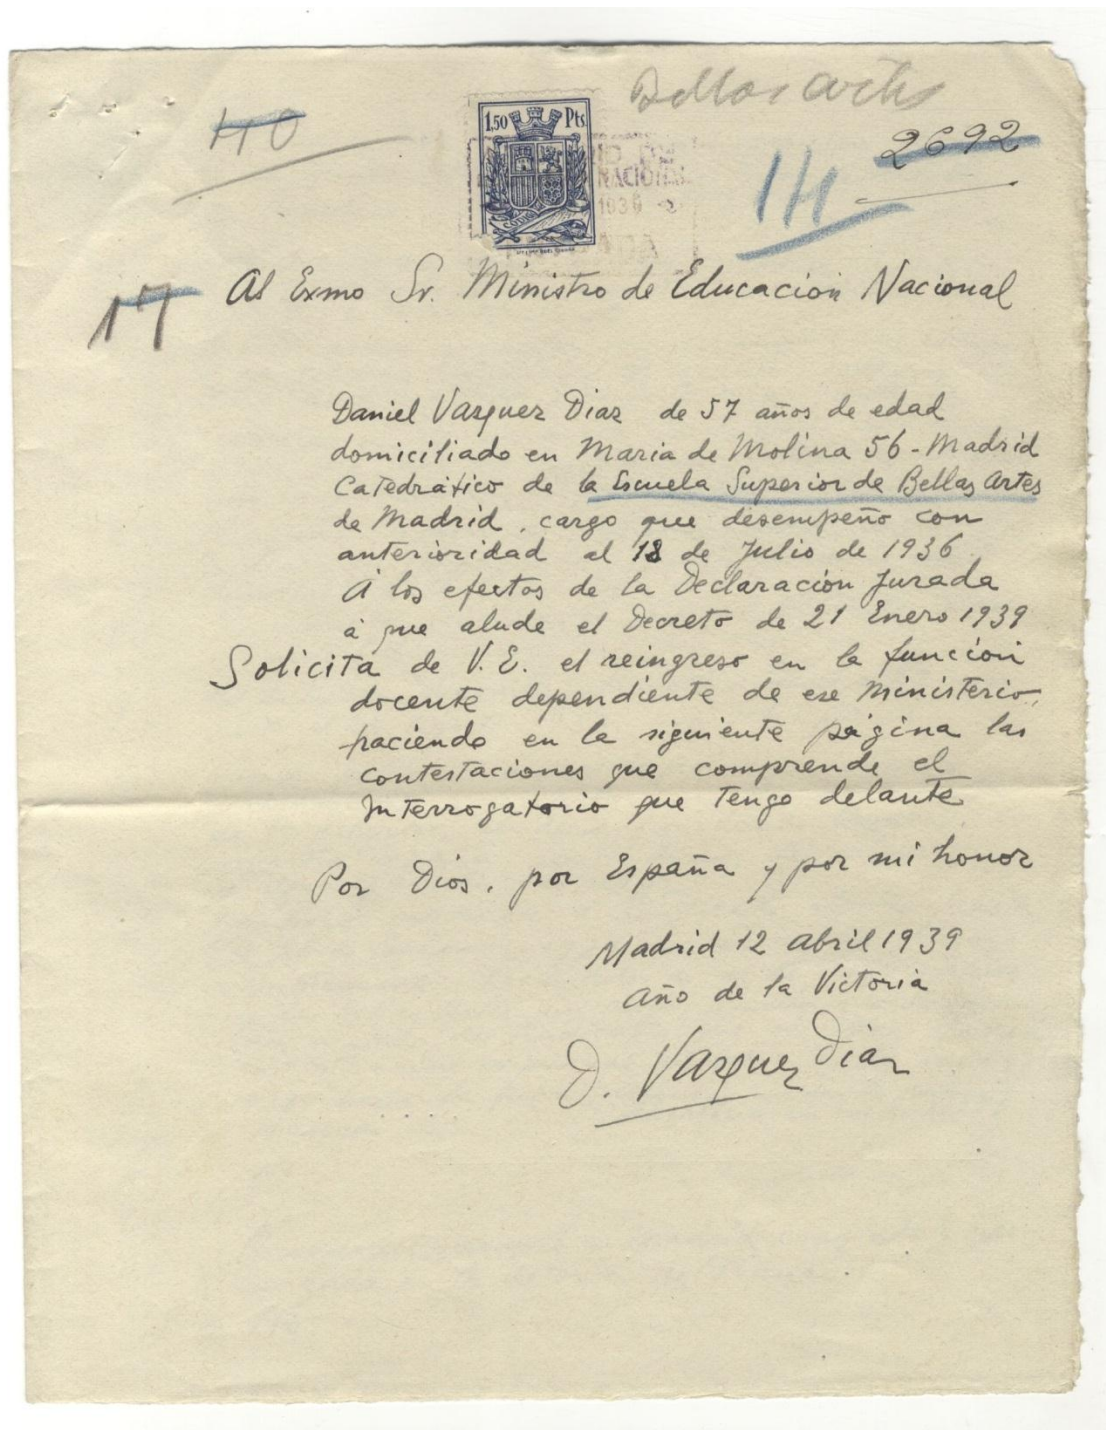 Bellas Artes
40
1,50 Pts
2692
14
NACIONAL
1939
17
Al Exmo Sr. Ministro de Educación Nacional
Daniel Vazquez Diaz de 57 años de edad
domiciliado en Maria de Molina 56 - Madrid
Catedrático de la Escuela Superior de Bellas Artes
de Madrid, cargo que desempeño con
anterioridad al 18 de Julio de 1936
Á los efectos de la Declaración Jurada
á que alude el Decreto de 21 Enero 1939
Solicita de V. E. el reingreso en la función
docente dependiente de ese Ministerio,
haciendo en la siguiente página las
contestaciones que comprende el
interrogatorio que tengo delante
Por Dios, por España y por mi honor
Madrid 12 abril 1939
año de la Victoria
D. Vazquez Diaz